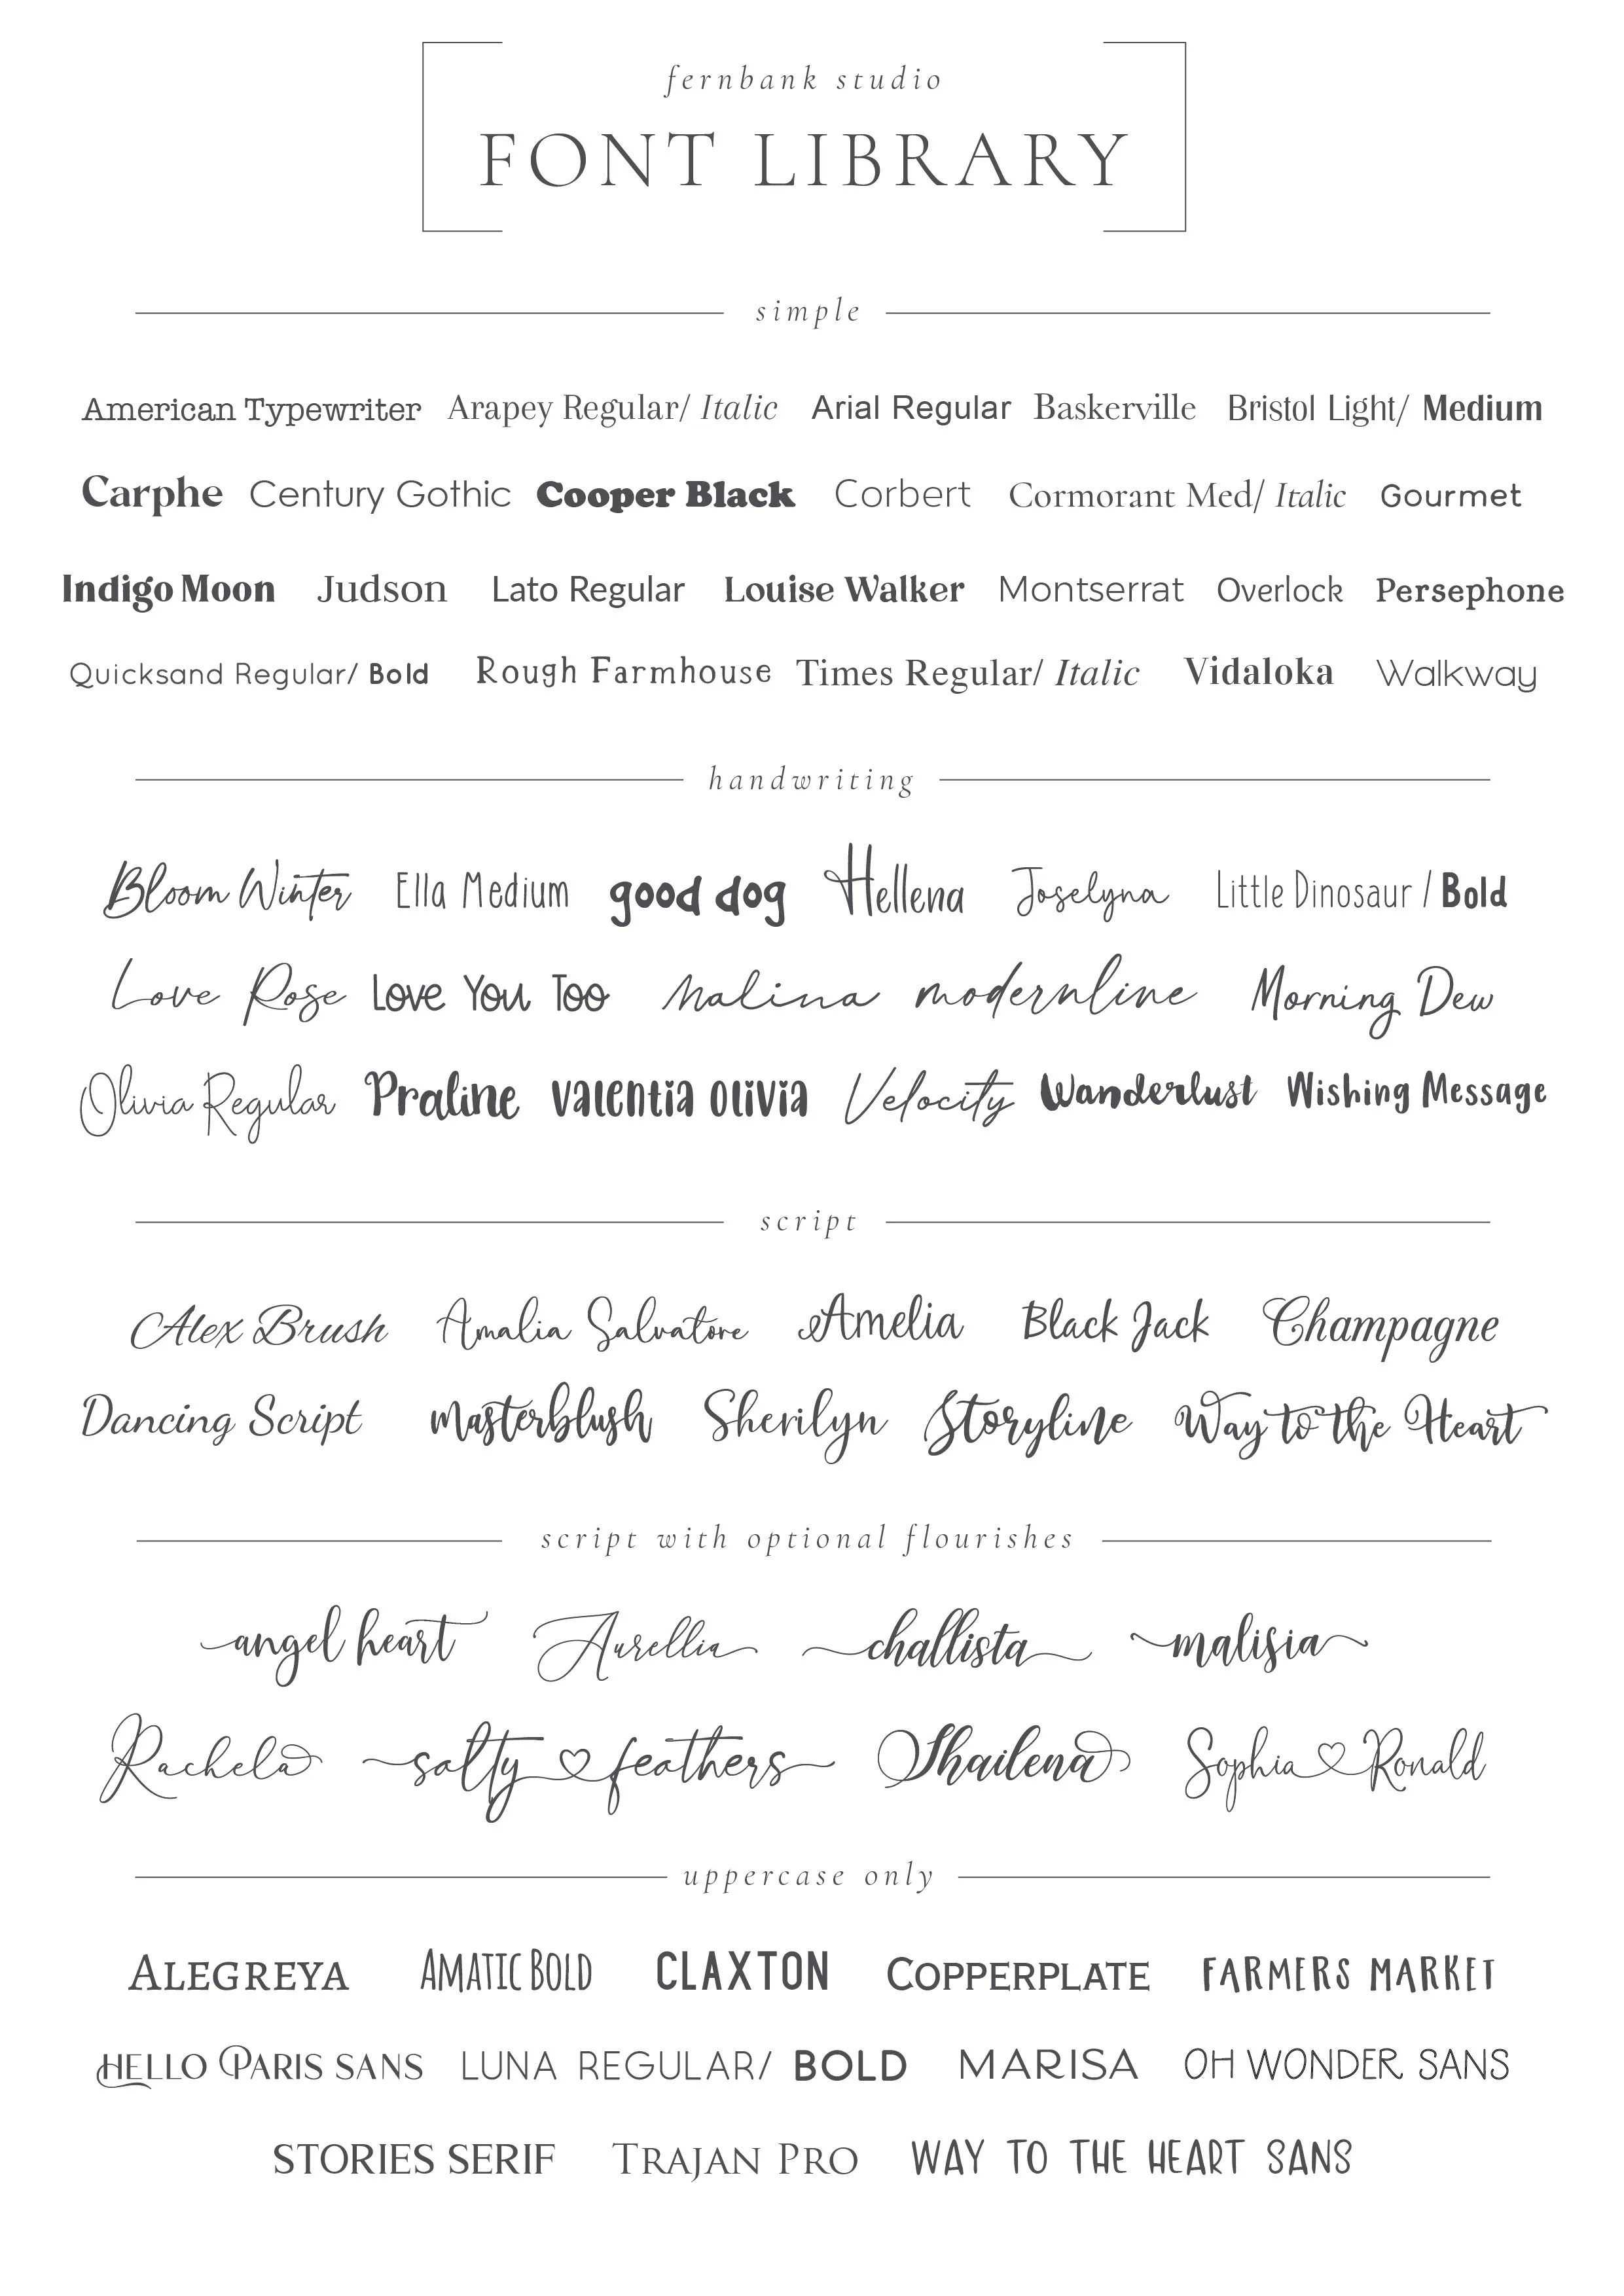 fernbank studio
FONT LIBRARY
simple
American Typewriter Arapey Regular/ Italic Arial Regular Baskerville Bristol Light/ Medium
Carphe Century Gothic Cooper Black Corbert Cormorant Med/ Italic Gourmet
Indigo Moon Judson Lato Regular Louise Walker Montserrat Overlock Persephone
Quicksand Regular/ Bold Rough Farmhouse Times Regular/ Italic Vidaloka Walkway
handwriting
Bloom Winter Ella Medium good dog Hellena Joselyna Little Dinosaur / Bold
Love Rose Love You Too Malina modernline Morning Dew
Olivia Regular Praline valentia olivia Velocity Wanderlust Wishing Message
script
Alex Brush Amalia Salvatore Amelia Black Jack Champagne
Dancing Script masterblush Sherilyn Storyline Way to the Heart
script with optional flourishes
angel heart Aurellia challista malisia
Rachela salty feathers Shailena Sophia Ronald
uppercase only
ALEGREYA AMATIC BOLD CLAXTON COPPERPLATE FARMERS MARKET
HELLO PARIS SANS LUNA REGULAR/ BOLD MARISA OH WONDER SANS
STORIES SERIF TRAJAN PRO WAY TO THE HEART SANS